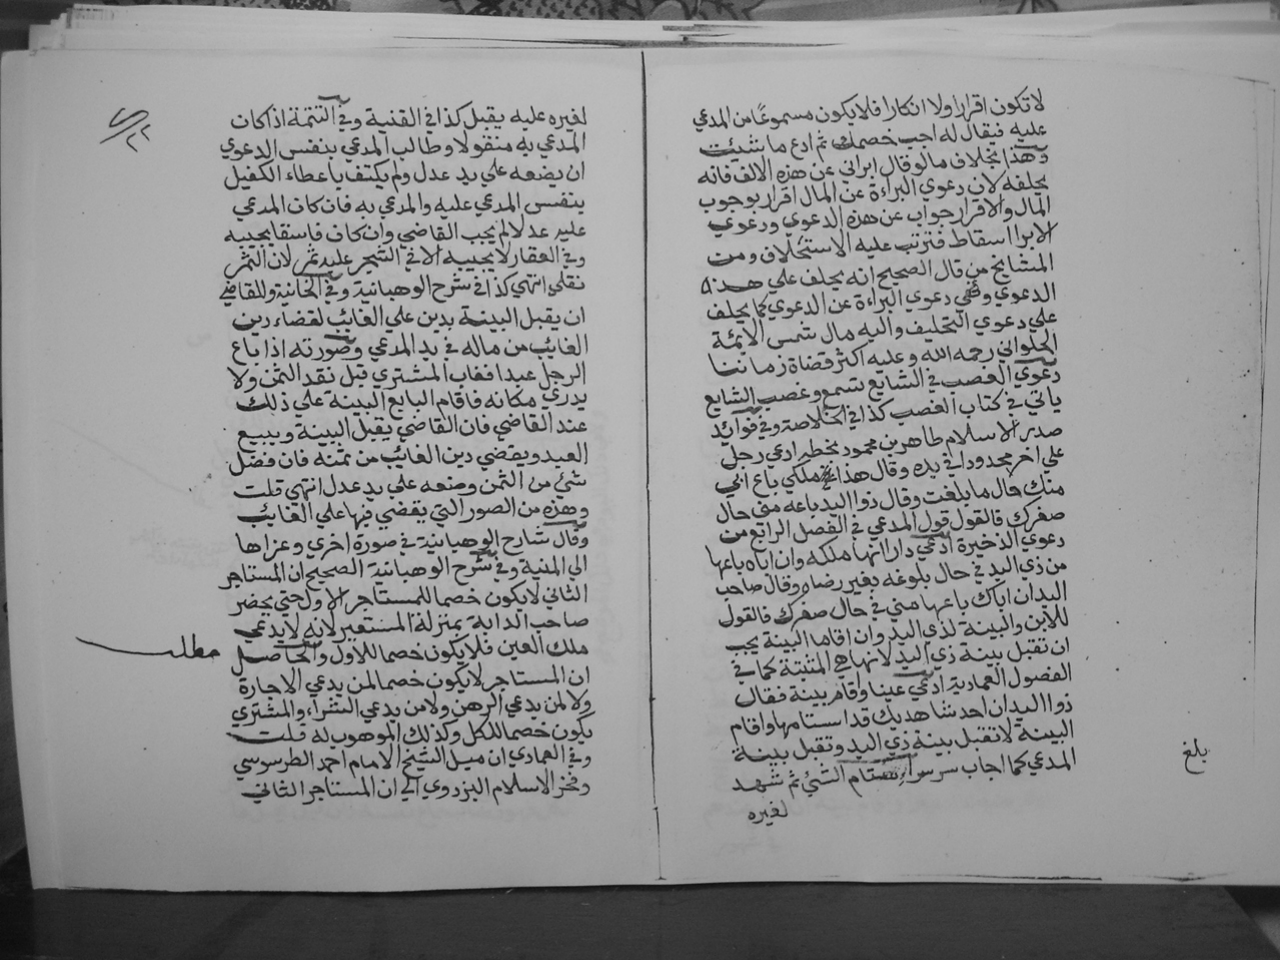 لا تكون اقرارا ولا انكارا فلا يكون مسموعا من المدعي
عليه فيقال له اجب خصمك ثم ادع ما شيت
وهذا بخلاف ما لو قال ابراني عن هذه الالف فانه
يحلفه لان دعوي البراءة عن المال اقرار بوجوب
المال والاقرار جواب عن هذه الدعوي ودعوي
الابرا اسقاط فترتب عليه الاستحلاف ومن
المشايخ من قال الصحيح انه يحلف علي هذه
الدعوي وفي دعوي البراءة عن الدعوي كما يحلف
علي دعوي التحليف واليه مال شمس الائمة
الحلواني رحمه الله وعليه اكثر قضاة زماننا
دعوي الغصب في الشايع تسمع وغصب الشايع
ياتي في كتاب الغصب كذا في الخلاصة وفي فوائد
صدر الاسلام طاهر بن محمود بخطه ادعي رجل
علي اخر محدودا في يده وقال هذا ملكي باع ابي
منك حال ما بلغت وقال ذو اليد باعه مني حال
صغرك فالقول قول المدعي في الفصل الرابع من
دعوي الذخيرة ادعي دارا انها ملكه وان اباه باعها
من ذي اليد في حال بلوغه بغير رضاه وقال صاحب
اليد ان اباك باعها مني في حال صغرك فالقول
للابن والبينة لذي اليد وان اقاما البينة يجب
ان تقبل بينة ذي اليد لانها هي المثبتة كما في
الفصول العمادية ادعي عينا واقام بينة فقال
ذو اليد ان احد شاهديك قد استامها واقام
البينة لا تقبل بينة ذي اليد وتقبل بينة
المدعي كما اجاب الشئ ثم شهد
لغيره
بلغ
٢٢
لغيره عليه يقبل كذا في القنية وفي التتمة اذا كان
المدعي به منقولا وطالب المدعي بنفس الدعوي
ان يضعه علي يد عدل ولم يكتف باعطاء الكفيل
بنفس المدعي عليه والمدعي به فان كان المدعي
عليه عدلا لم يجب القاضي وان كان فاسقا يجيبه
وفي العقار لا يجيبه الا في الشجر عليه ثمر لان الثمر
نقلي انتهي كذا في شرح الوهبانية وفي الخانية وللقاضي
ان يقبل البينة بدين علي الغايب لقضاء دين
الغايب من ماله في يد المدعي وصورته اذا باع
الرجل عبدا فغاب المشتري قبل نقد الثمن ولا
يدري مكانه فاقام البايع البينة علي ذلك
عند القاضي فان القاضي يقبل البينة ويبيع
العبد ويقضي دين الغايب من ثمنه فان فضل
شئ من الثمن وضعه علي يد عدل انتهي قلت
وهذه من الصور التي يقضي فيها علي الغايب
وقال شارح الوهبانية في صورة اخري وعزاها
الي المنية وفي شرح الوهبانية الصحيح ان المستاجر
الثاني لا يكون خصما للمستاجر الاول حتي يحضر
صاحب الدابة بمنزلة المستعير لانه لا يدعي
ملك العين فلا يكون خصما للاول والحاصل
مطلب
ان المستاجر لا يكون خصما لمن يدعي الاجارة
ولا لمن يدعي الرهن ولا من يدعي الشراء والمشتري
يكون خصما للكل وكذلك الموهوب له قلت
وفي العمادي ان ميل الشيخ الامام احمد الطرسوسي
وفخر الاسلام البزدوي الي ان المستاجر الثاني